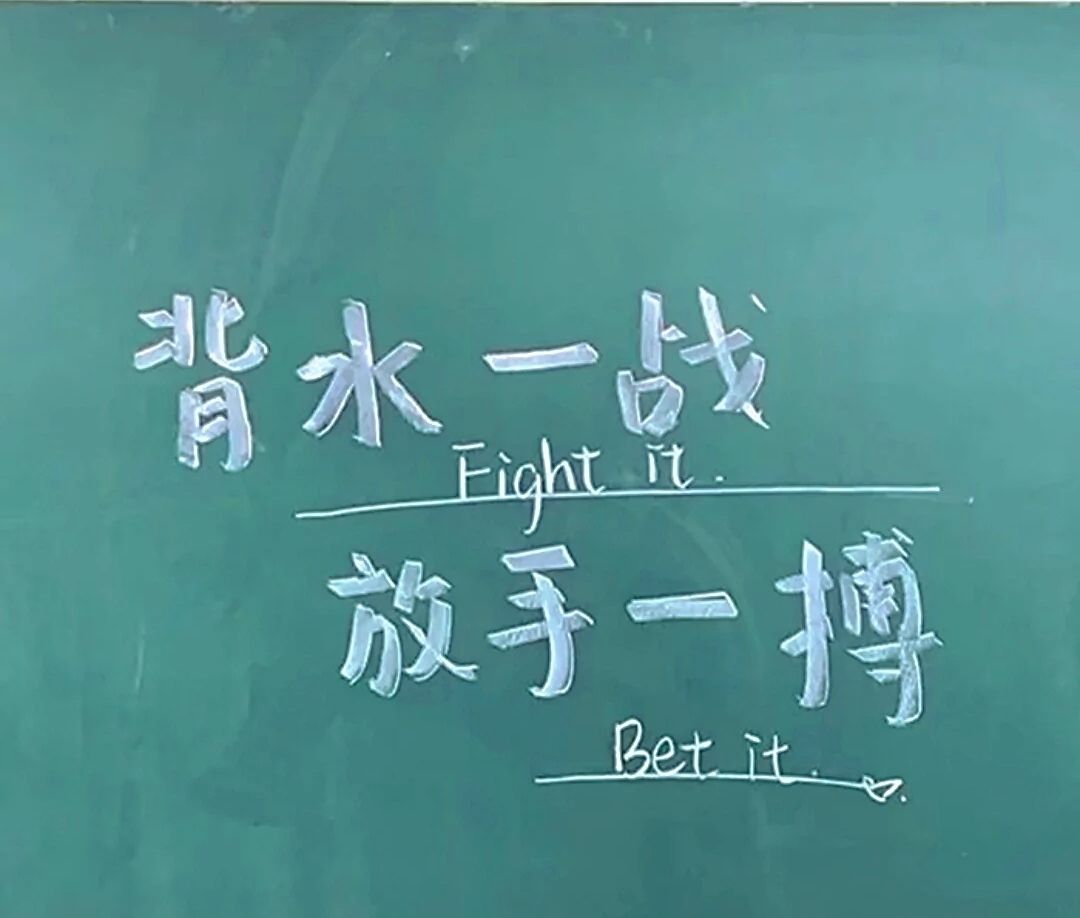 背水一战
Fight it.
放手一搏
Bet it.